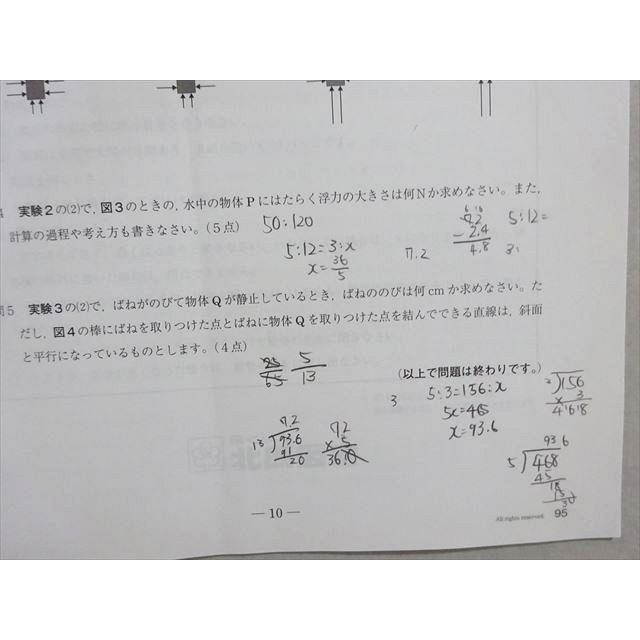 実験2の(2)で，図3のときの，水中の物体Pにはたらく浮力の大きさは何Nか求めなさい。また，
計算の過程や考え方も書きなさい。（5点）
50:120
5:12=3:x
x=36/5
7.2
7.2
-2.4
4.8
5:12=
3:
問5 実験3の(2)で，ばねがのびて物体Qが静止しているとき，ばねののびは何cmか求めなさい。た
だし，図4の棒にばねを取りつけた点とばねに物体Qを取りつけた点を結んでできる直線は，斜面
と平行になっているものとします。（4点）
5
13
（以上で問題は終わりです。）
3
5:3=156:x
x=93.6
156
x 3
468
7.2
13 93.6
91
20
72
x 5
360
93 6
5 468
45
— 10 —
All rights reserved.
95